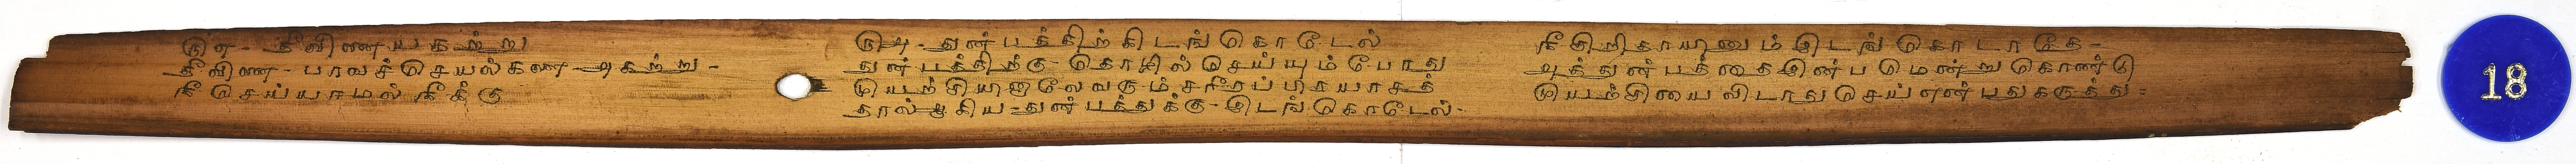 ௫௭ - தீவினையகற்று
தீவினை - பாவச்செயல்களை - அகற்று -
நீ செய்யாமல் நீக்கு
௫௮ - துன்பத்திற்கிடங்கொடேல்
துன்பத்திற்கு - தொழில் செய்யும் போது
முயற்சியினாலே வரும் சரீரப்பிரயாசத்
தால் ஆகிய - துன்பத்துக்கு - இடங்கொடேல் -
நீ சிறிதாயினும் இடங்கொடாதே -
அத்துன்பத்தை இன்பமென்று கொண்டு
முயற்சியை விடாது செய் என்பது கருத்து =
18